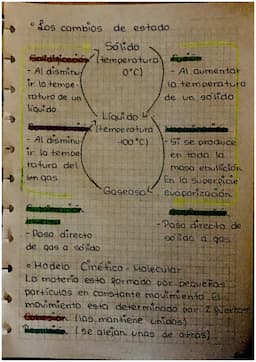 ° Los cambios de estado
Sólido
(temperatura
0°C)
Solidificación
- Al disminu
ir la tempe
ratura de un
líquido
Fusión
- Al aumentar
la temperatura
de un sólido
Líquido
(temperatura
100°C)
- Al disminu
ir la tempe
ratura del
un gas
- Si se produce
en toda la
masa ebullición
En la superficie
evaporización
Gaseoso
- Paso directo
de gas a sólido
- Paso directo de
solido a gas
° Modelo Cinético - Molecular
La materia está formado por pequeñas
partículas en constante movimiento. El
movimiento esta determinado por 2 fuerzas
Cohesión (las mantiene unidas)
(se alejan unas de otras)